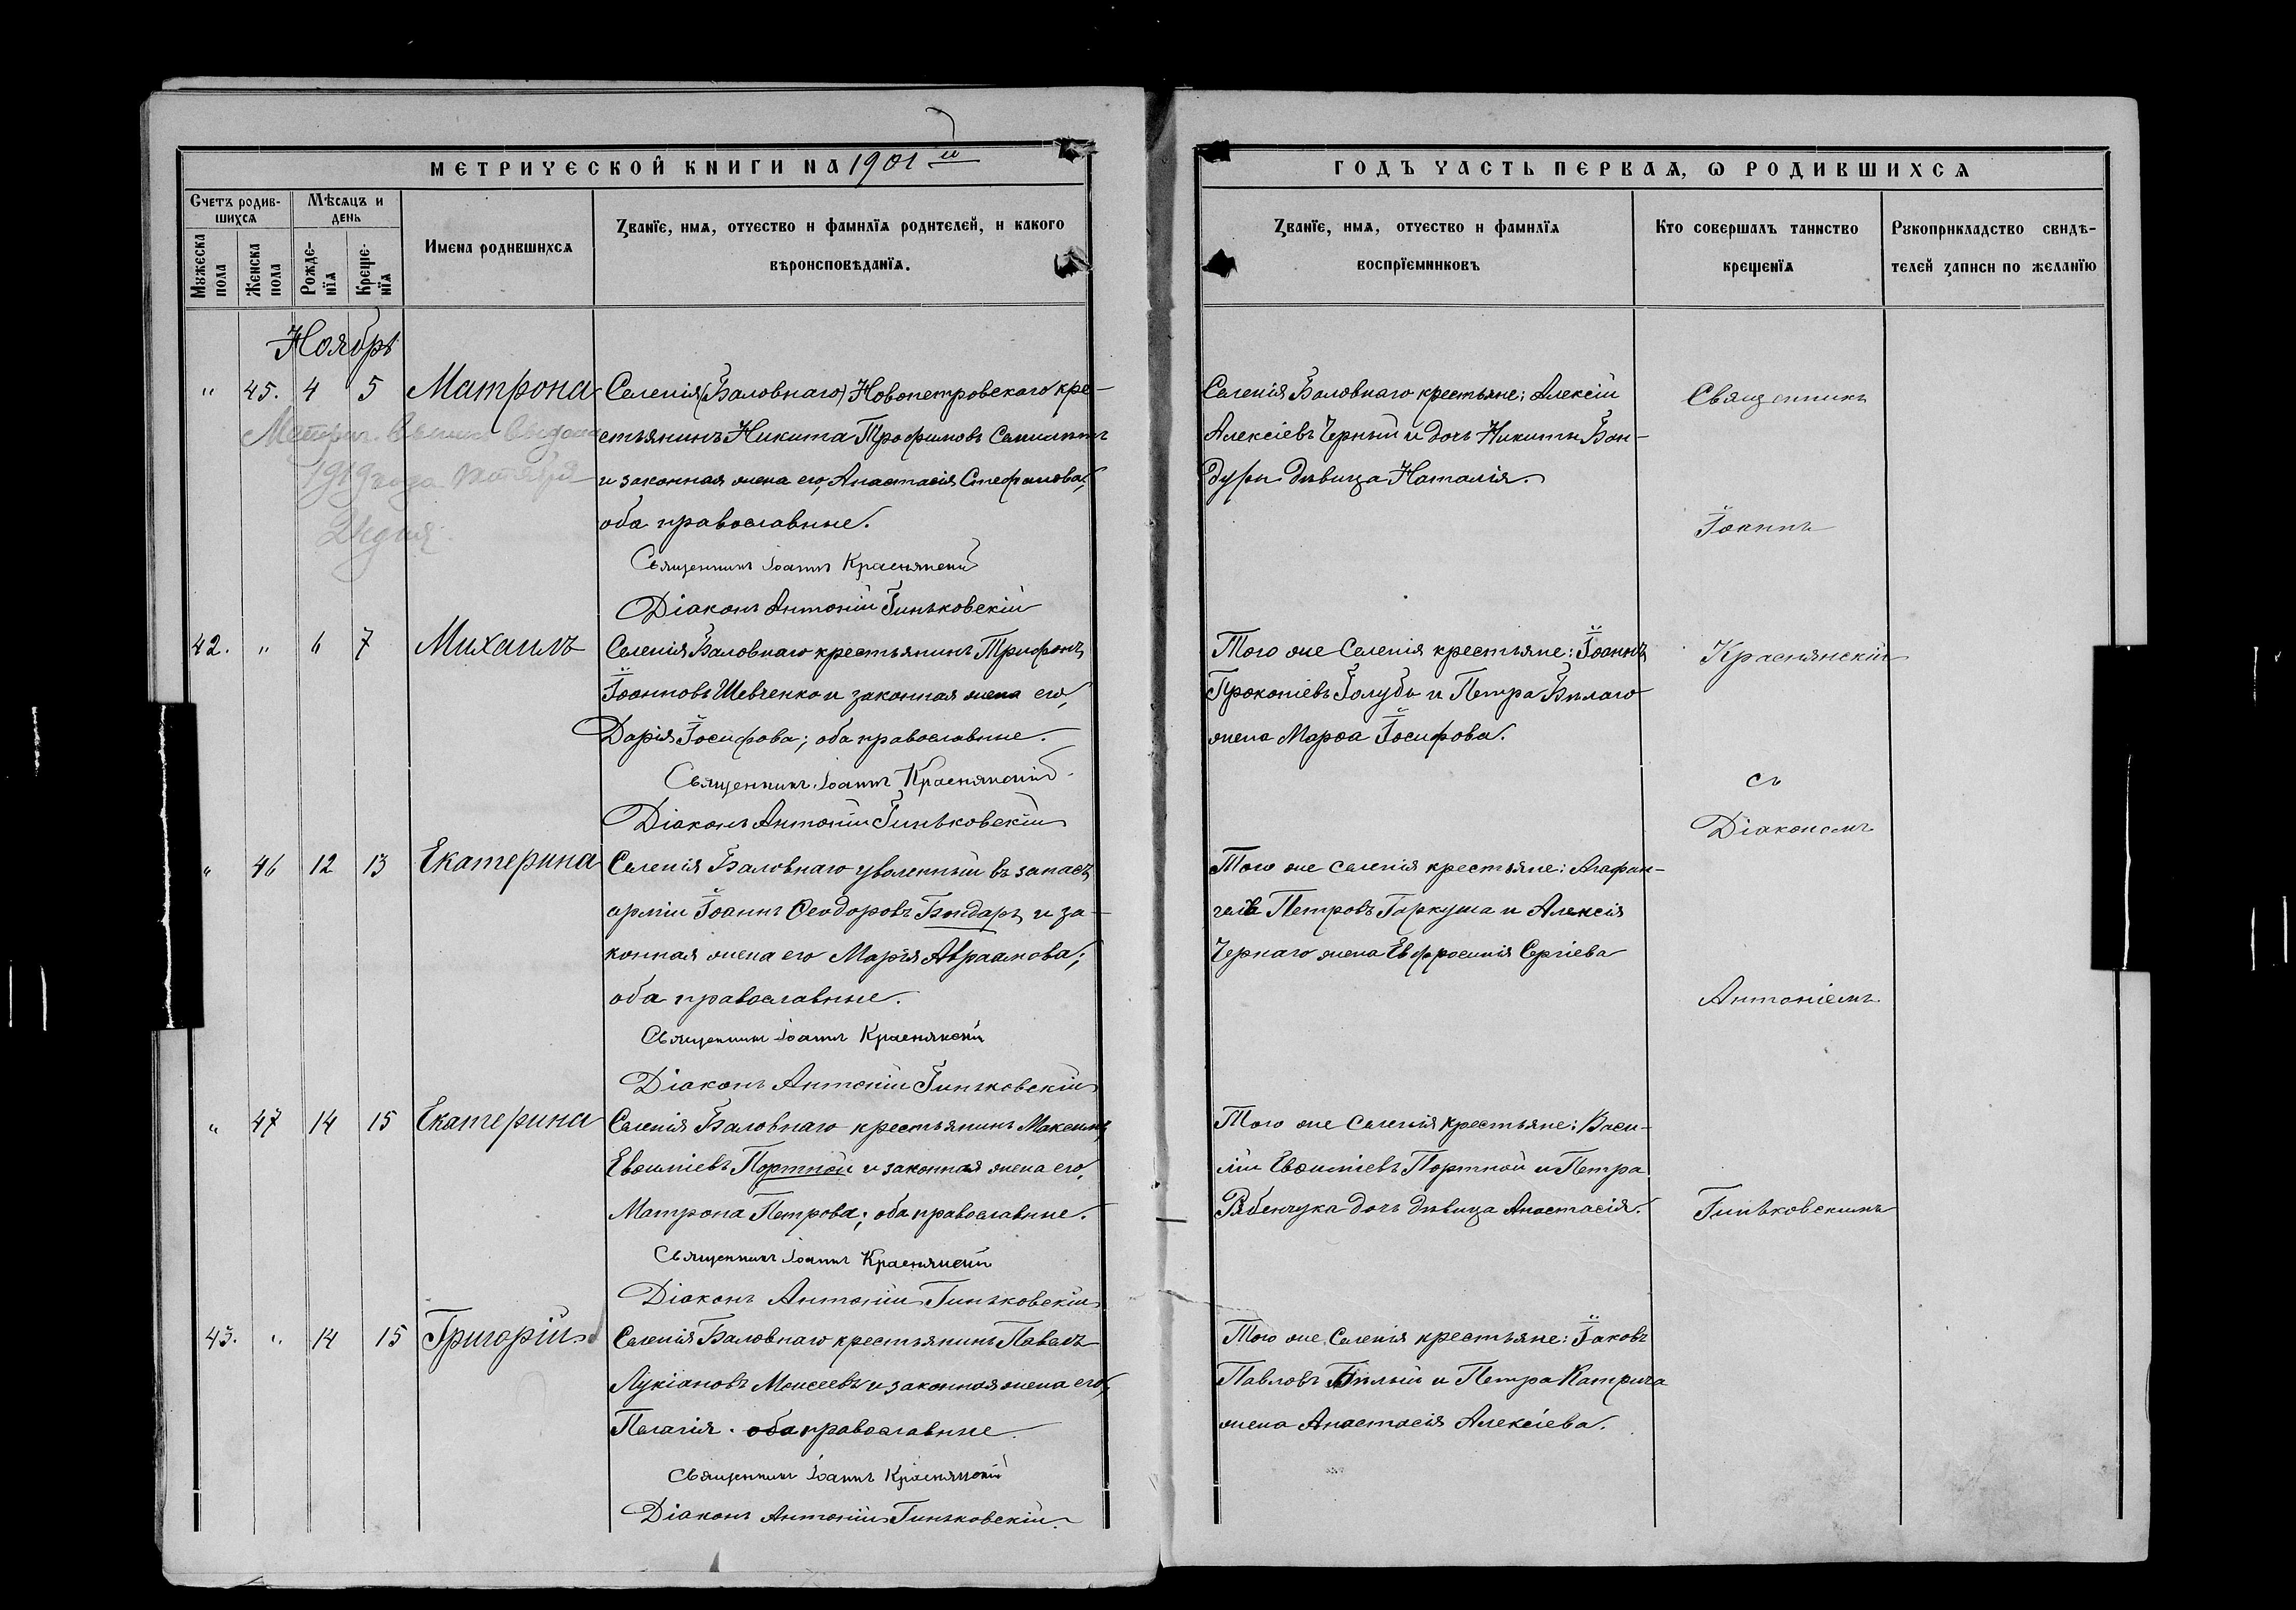 МЕТРИЧЕСКОЙ КНИГИ НА 1901 й
Счетъ родив-
шихся
Мѣсяцъ и
день
Мужеска
пола
Женска
пола
Рожде-
нїя
Креще-
нїя
Имена родившихся
Званїе, имя, отчество и фамилїя родителей, и какого
вѣроисповѣданїя.
Ноябрь
" 45. 4 5 Матрона Селенія (Баловнаго) Новопетровскаго кре-
стьянинъ Никита Трофимовъ
и законная жена его, Анастасія Стефанова,
оба православные.
Священникъ Іоаннъ Краснянскій
Діаконъ Антоній Гиньковскій
Метрич. выпись выдана
1919 года октября
2 дня.
42. " 6 7 Михаилъ Селенія Баловнаго крестьянинъ Трифонъ
Іоанновъ Шевченко и законная жена его,
Дарія Іосифова; оба православные.
Священникъ Іоаннъ Краснянскій
Діаконъ Антоній Гиньковскій
" 46 12 13 Екатерина Селенія Баловнаго уволенный въ запасъ
арміи Іоаннъ Ѳеодоровъ Бондарь и за-
конная жена его Марія Авраамова;
оба православные.
Священникъ Іоаннъ Краснянскій
Діаконъ Антоній Гиньковскій
" 47 14 15 Екатерина Селенія Баловнаго крестьянинъ Максимъ
Евѳиміевъ Портной и законная жена его,
Матрона Петрова; оба православные.
Священникъ Іоаннъ Краснянскій
Діаконъ Антоній Гиньковскій
43. " 14 15 Григорій Селенія Баловнаго крестьянинъ Павелъ
Лукіановъ Моисеевъ и законная жена его,
Пелагія. оба православные
Священникъ Іоаннъ Краснянскій
Діаконъ Антоній Гиньковскій.
ГОДЪ ЧАСТЬ ПЕРВАЯ, Ѡ РОДИВШИХСЯ
Званїе, имя, отчество и фамилїя
воспрїемниковъ
Кто совершалъ таинство
крещенїя
Рукоприкладство свидѣ-
телей записи по желанїю
Селенія Баловнаго крестьяне: Алексій
Алексіевъ Черный и дочь Никиты Бон-
дуры дѣвица Наталія.
Того же Селенія крестьяне: Іоаннъ
Прокопіевъ Голубь и Петра Бѣлаго
жена Марѳа Іосифова.
Того же селенія крестьяне: Агафан-
гелъ Петровъ Гаркуша и Алексія
Чернаго жена Евфросинія Сергіева
Того же Селенія крестьяне: Васи-
лій Евѳиміевъ Портной и Петра
Рябенчука дочь дѣвица Анастасія.
Того же Селенія крестьяне: Іаковъ
Павловъ Бѣлый и Петра Катрича
жена Анастасія Алексіева.
Священникъ
Іоаннъ
Краснянскій
съ
Діакономъ
Антоніемъ
Гиньковскимъ